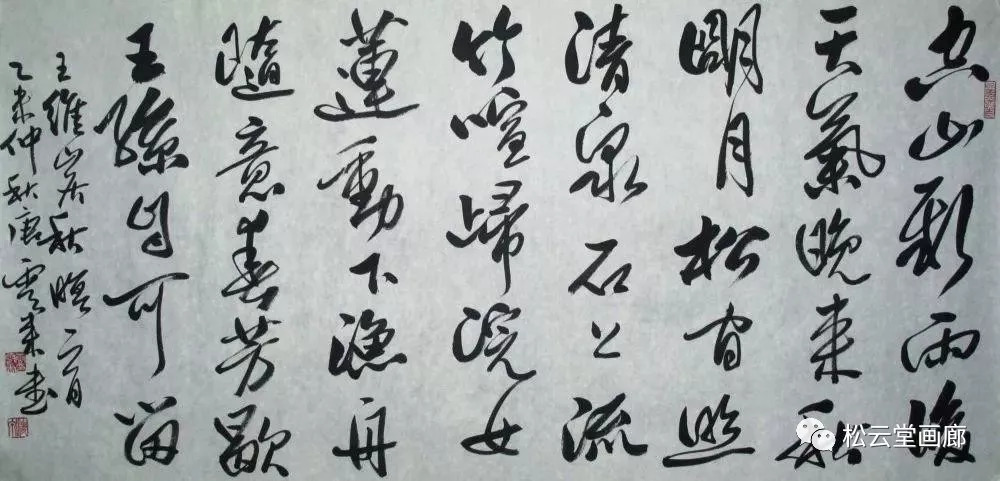 空山新雨後
天氣晚來秋
明月松间照
清泉石上流
竹喧歸浣女
蓮動下漁舟
隨意春芳歇
王孫自可留
王維山居秋暝
乙未仲秋唐雲來書
松云堂画廊